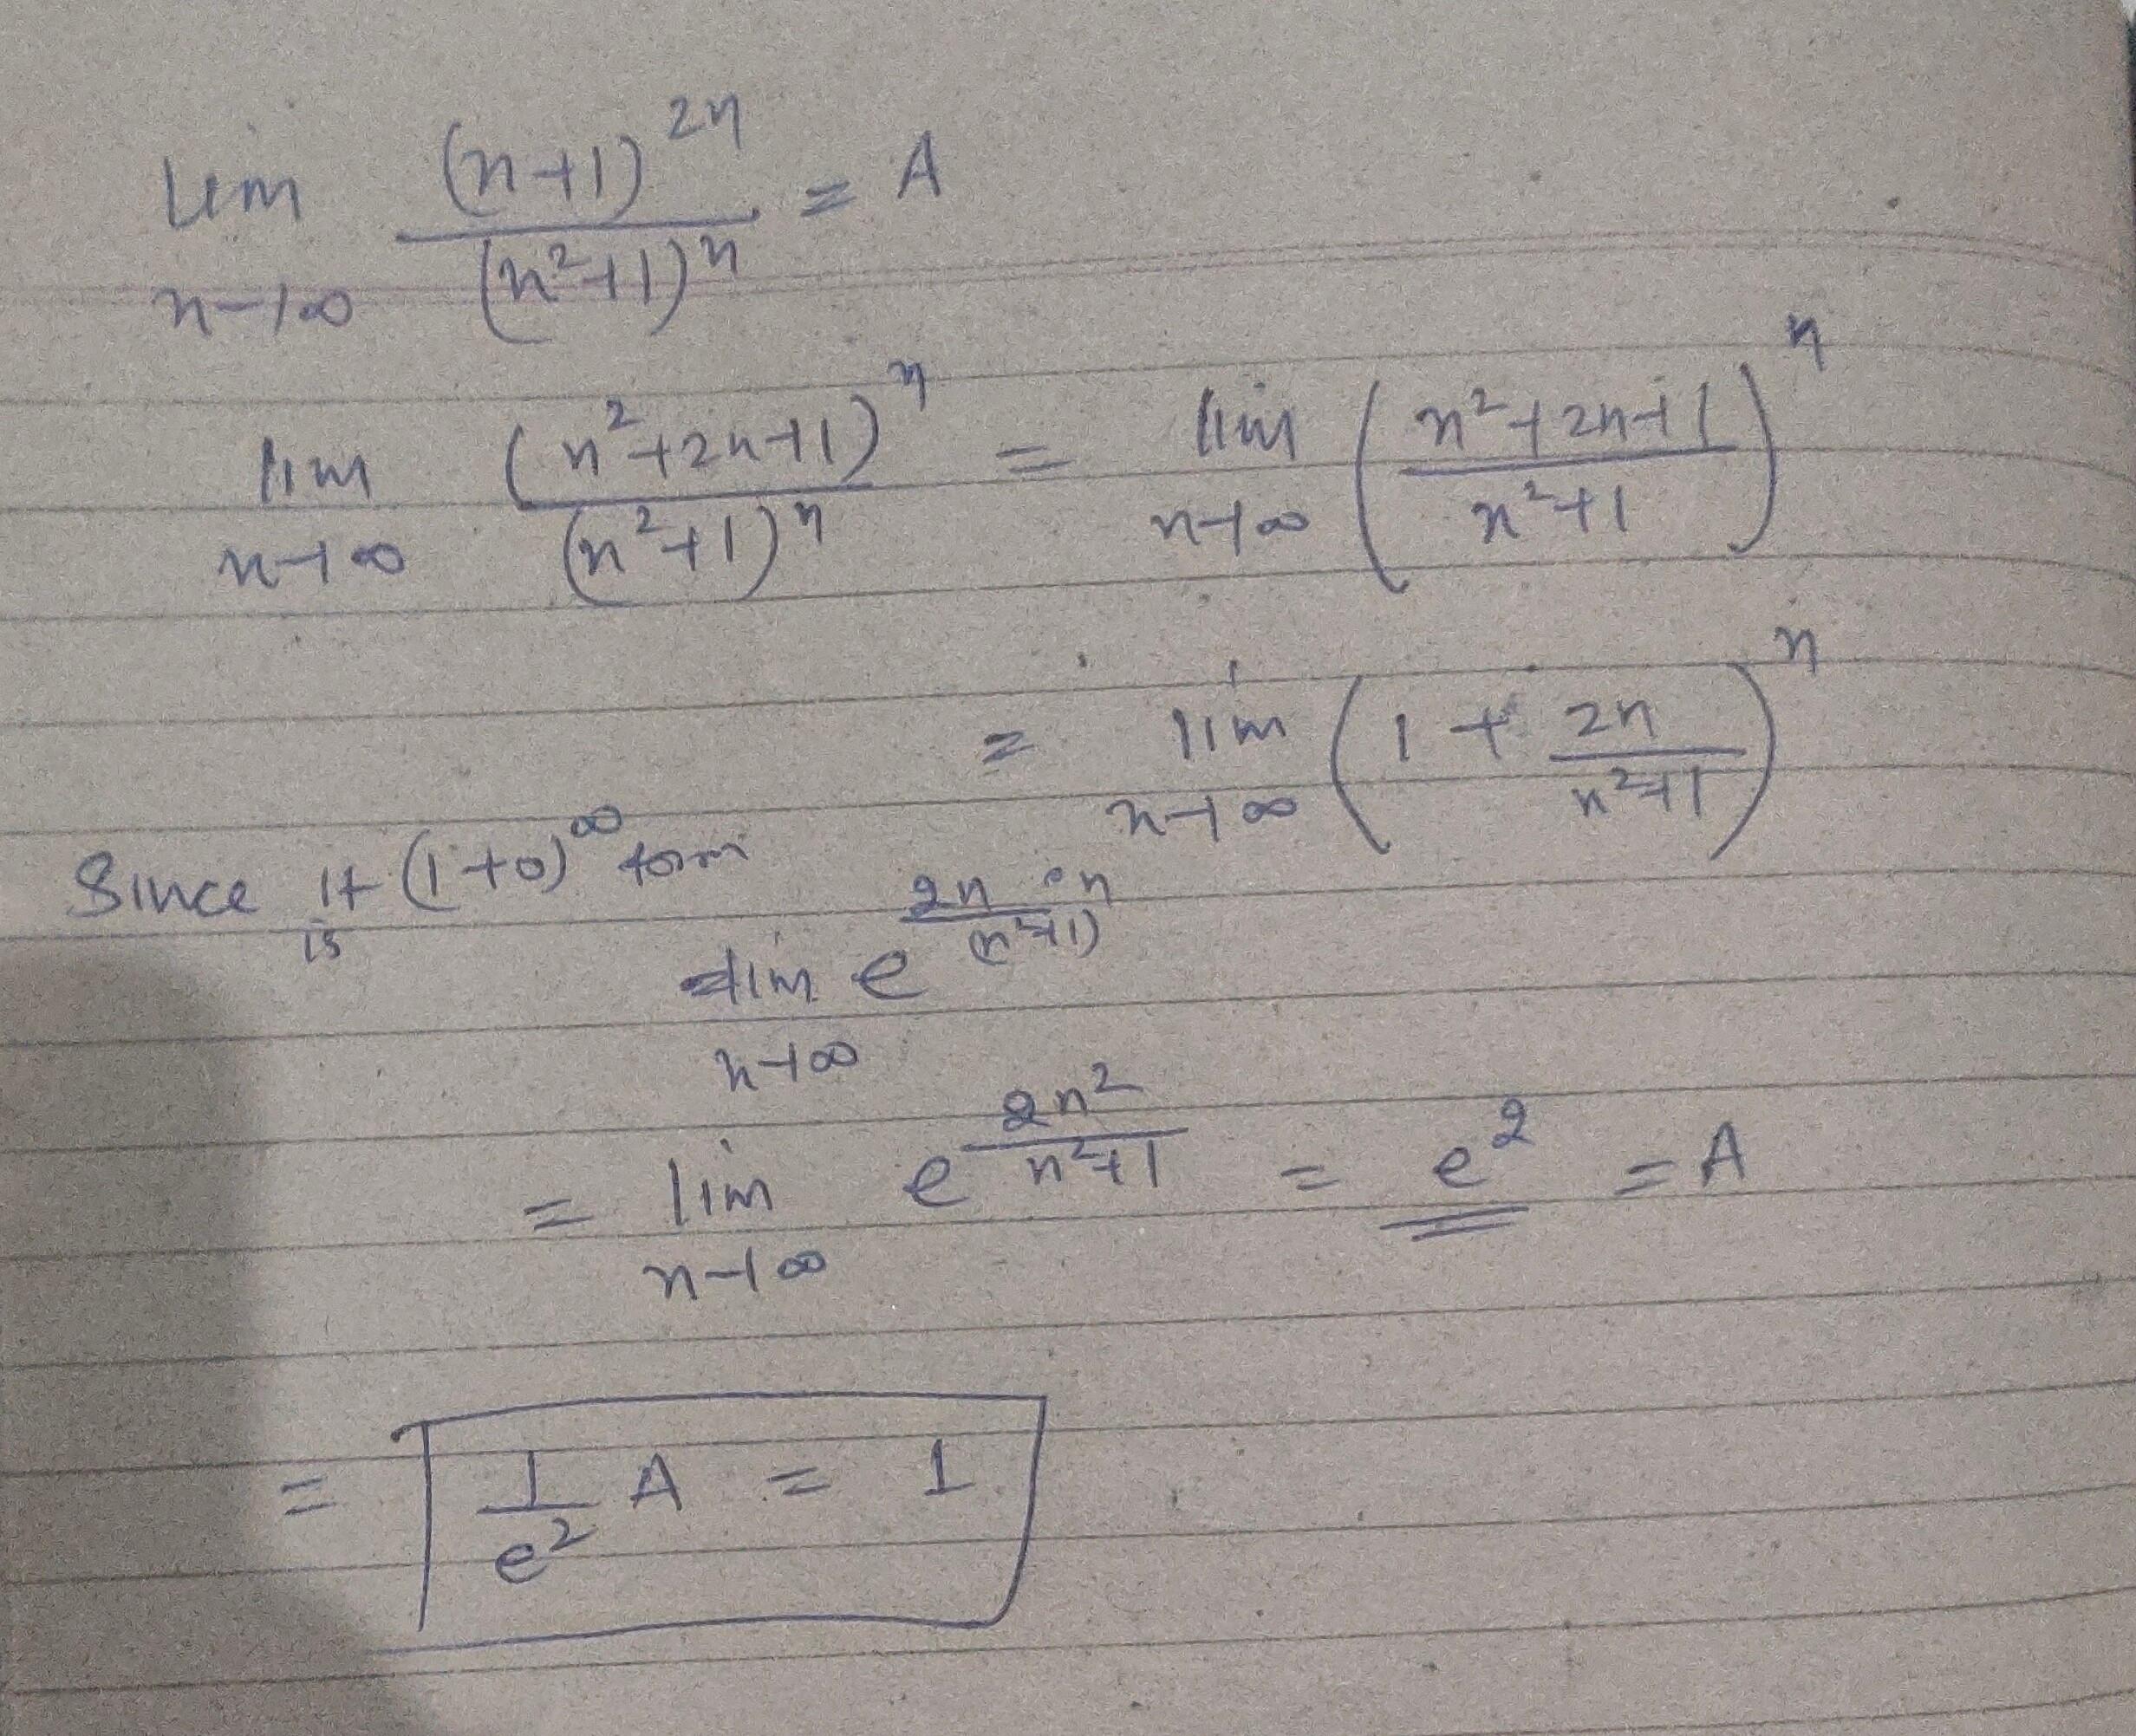 lim n→∞ (n+1)^2n / (n²+1)^n = A
lim n→∞ (n²+2n+1)^n / (n²+1)^n = lim n→∞ ( (n²+2n+1) / (n²+1) )^n
= lim n→∞ ( 1 + 2n / (n²+1) )^n
Since it is (1+0)^∞ form
= lim n→∞ e^( 2n / (n²+1) · n )
= lim n→∞ e^( 2n² / (n²+1) ) = e² = A
= 1/e² A = 1